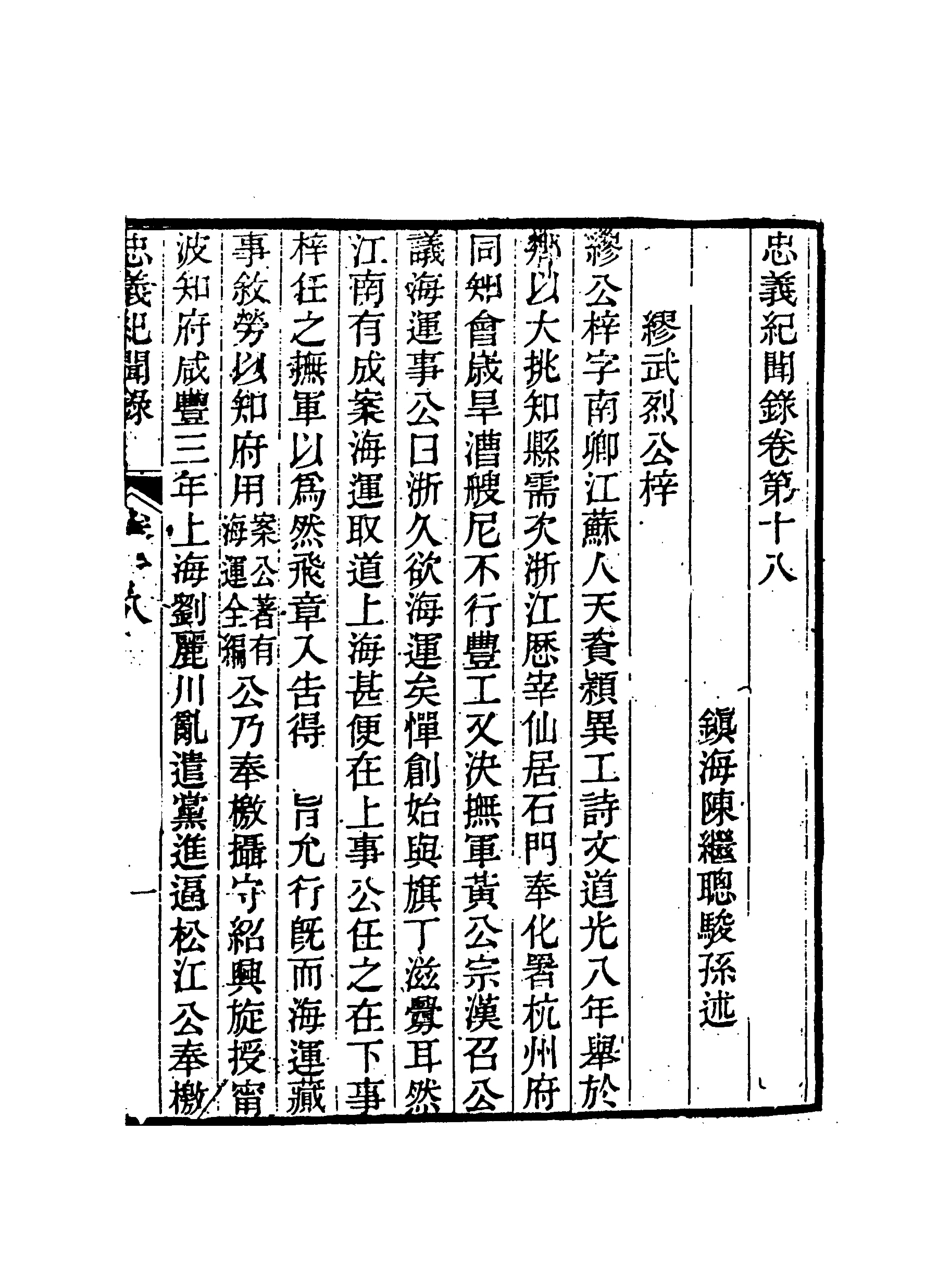 忠義紀聞錄卷第十八
鎭海陳繼聰駿孫述
繆武烈公梓
繆公梓字南卿江蘇人天資穎異工詩文道光八年舉於
鄕以大挑知縣需次浙江歷宰仙居石門奉化署杭州府
同知會歲旱漕艘尼不行豐工又決撫軍黃公宗漢召公
議海運事公曰浙久欲海運矣憚創始與旗丁滋釁耳然
江南有成案海運取道上海甚便在上事公任之在下事
梓任之撫軍以爲然飛章入告得　旨允行旣而海運藏
事敘勞以知府用案公著有海運全編公乃奉檄攝守紹興旋授甯
波知府咸豐三年上海劉麗川亂遣黨進逼松江公奉檄
忠義紀聞錄
卷十八
一